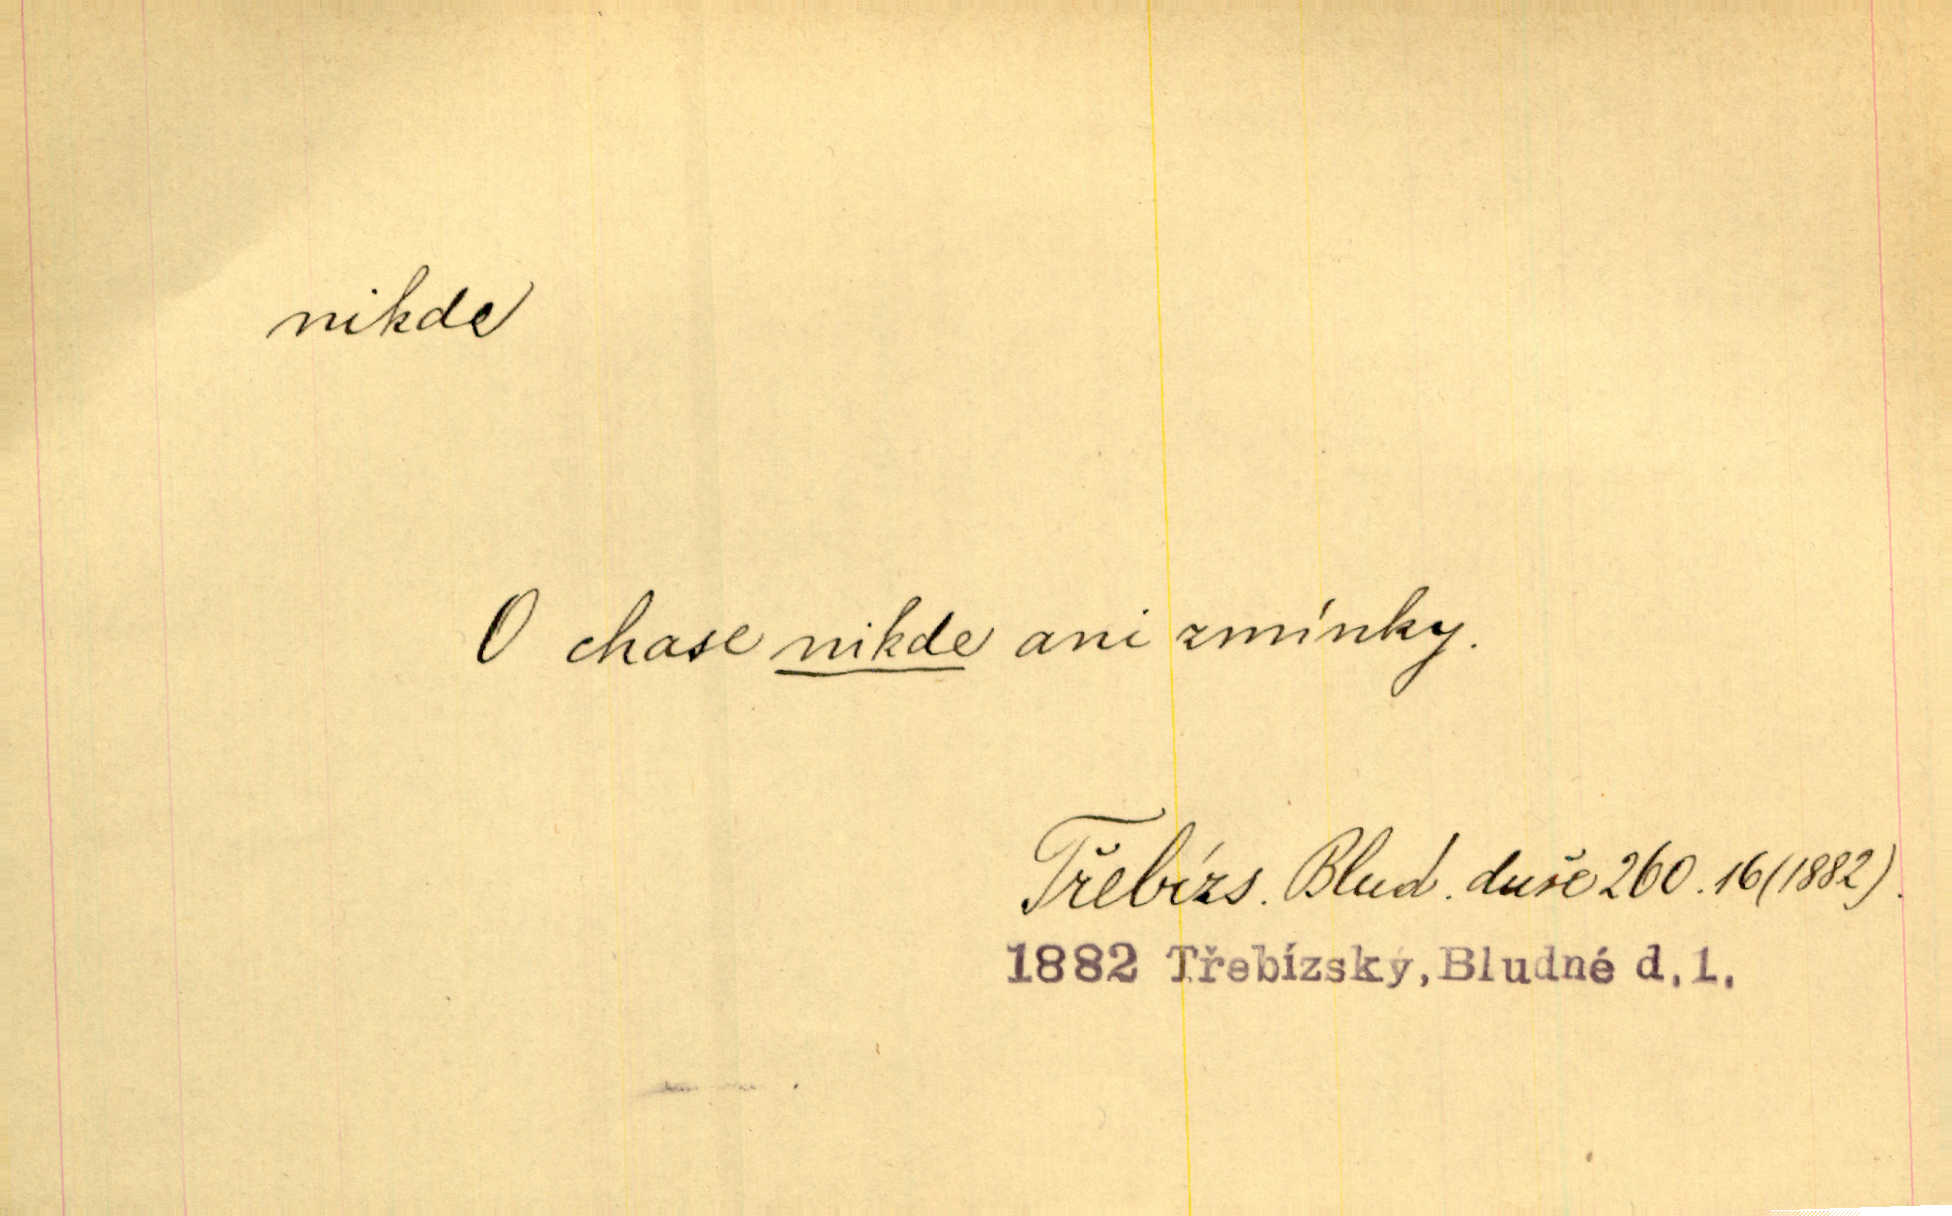 nikde
O chase nikde ani zmínky.
Třebízs. Blud. duše 260.16(1882).
1882 Třebízský, Bludné d.1.